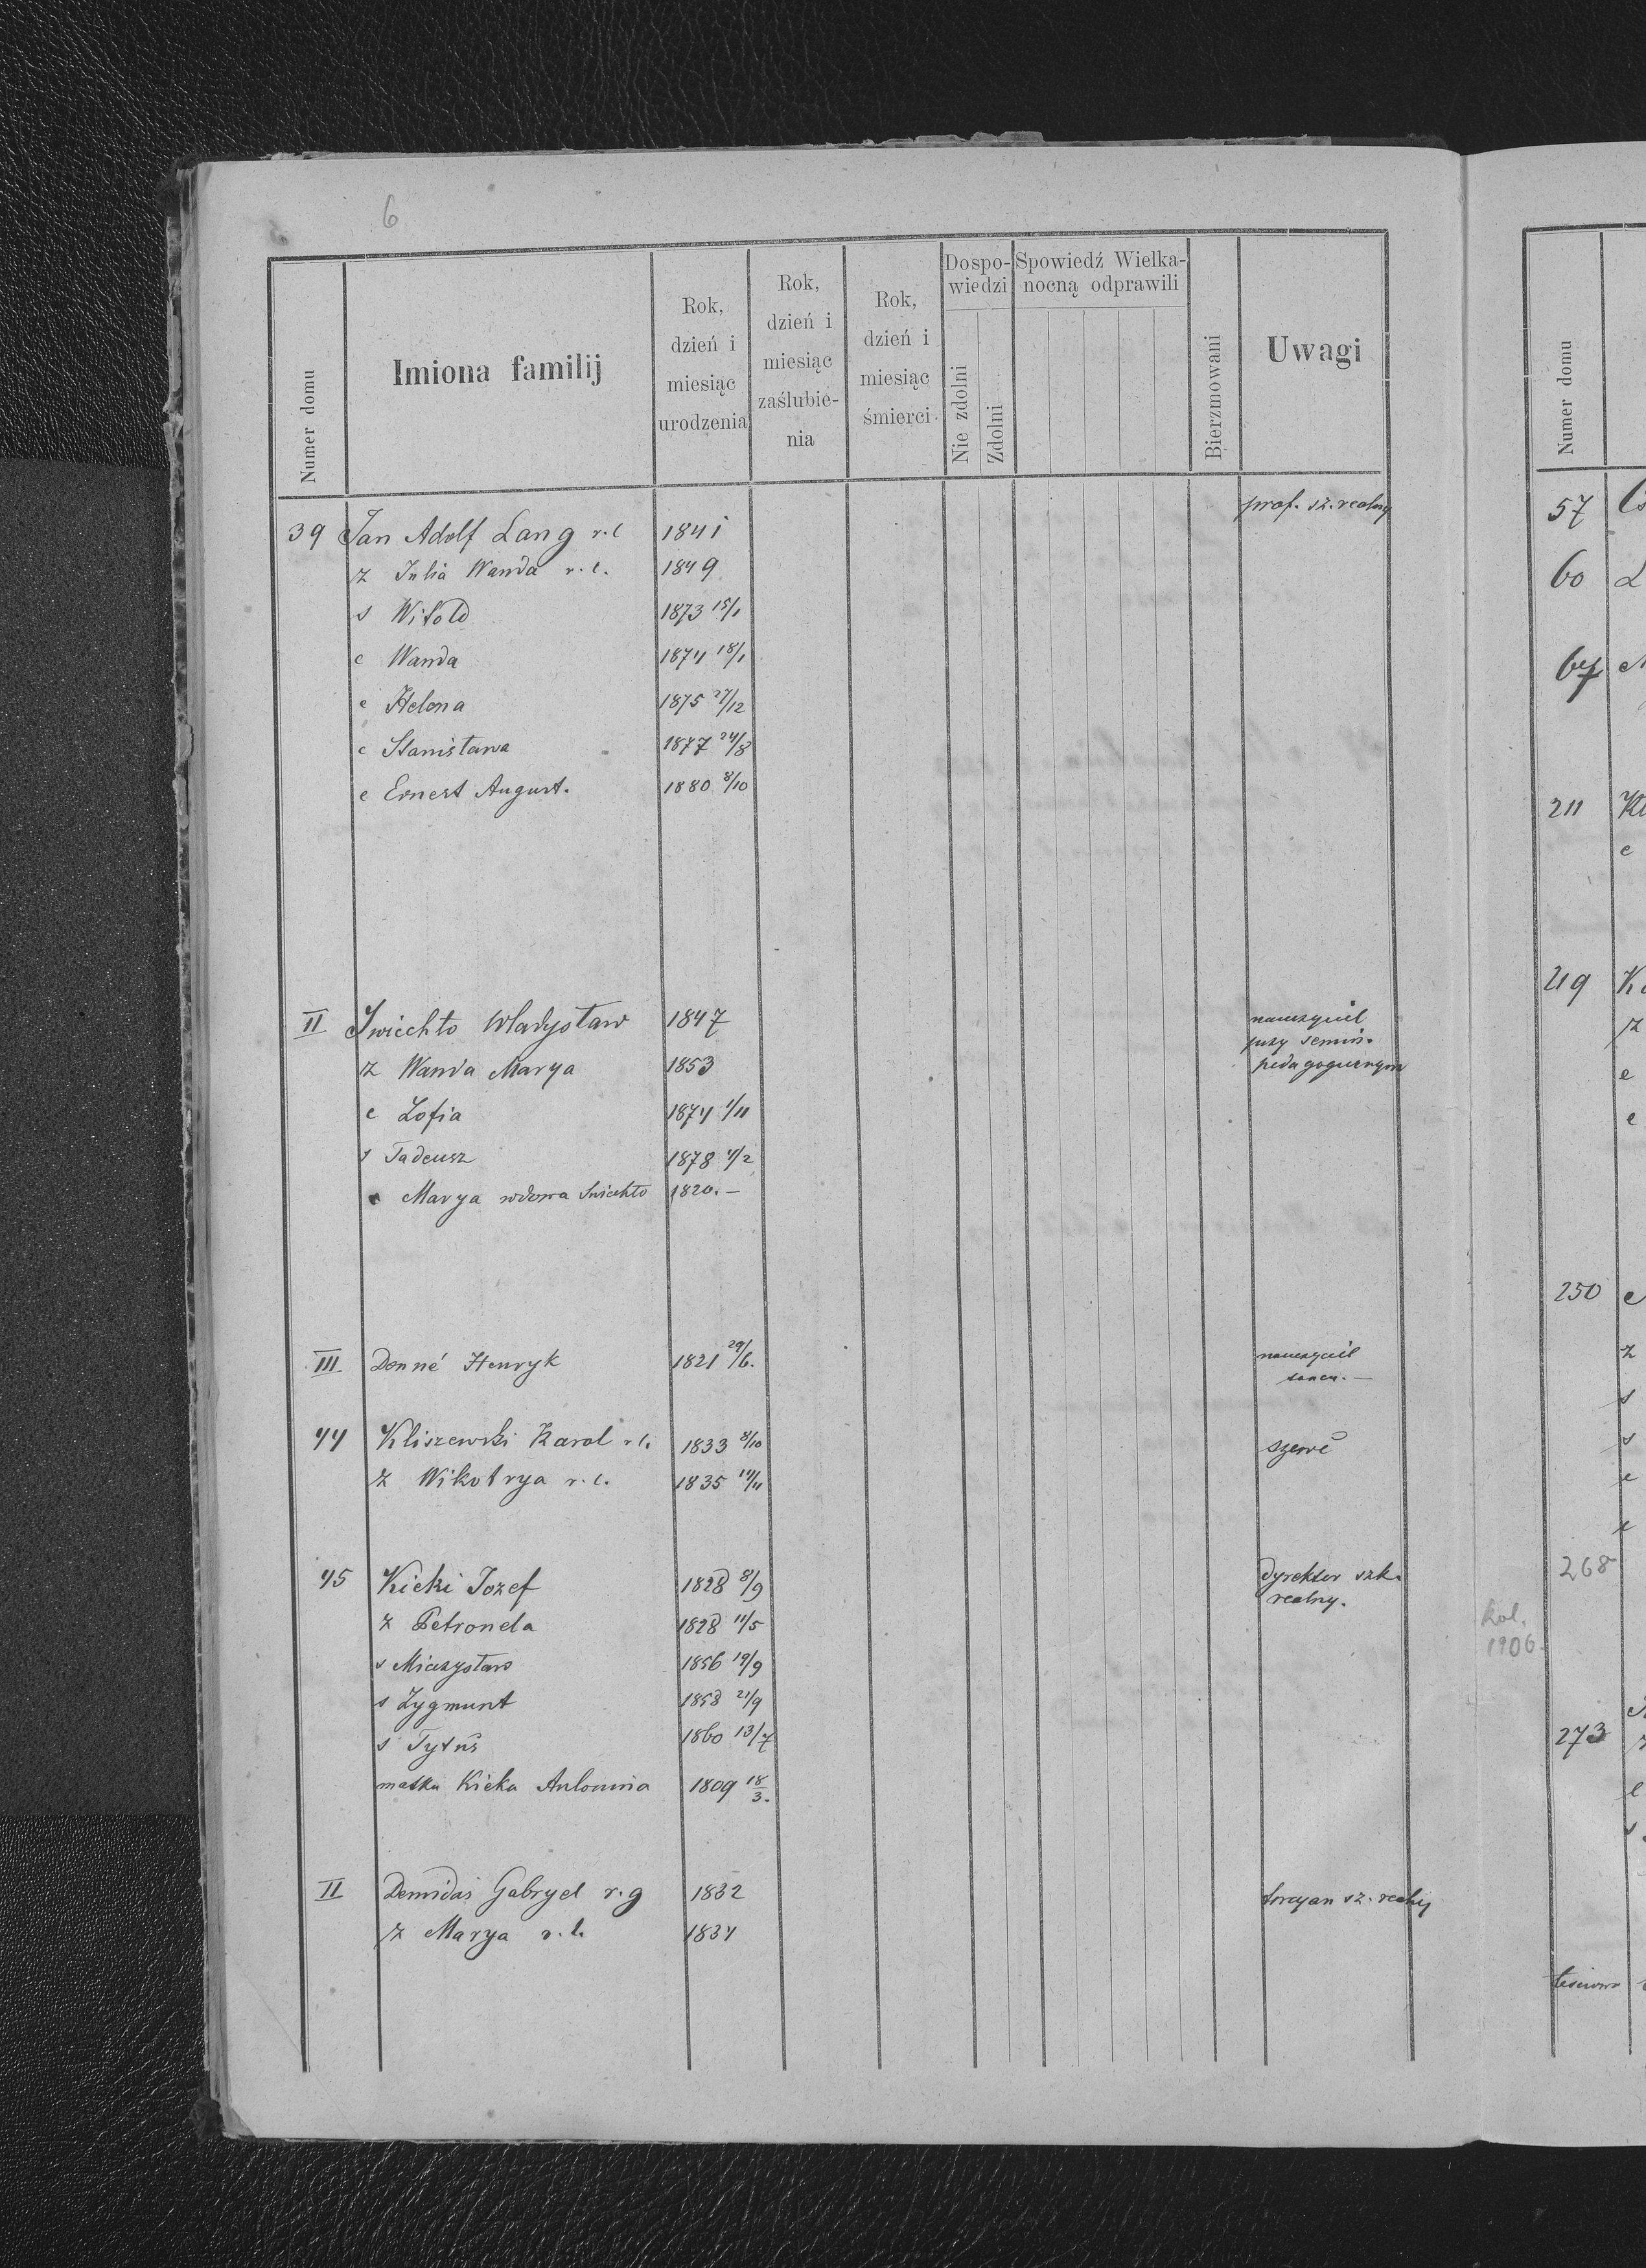 6
Numer domu
Imiona familij
Rok, dzień i miesiąc urodzenia
Rok, dzień i miesiąc zaślubie-nia
Rok, dzień i miesiąc śmierci.
Dospo-wiedzi
Nie zdolni
Zdolni
Spowiedź Wielka-nocną odprawili
Bierzmowani
Uwagi
39 Jan Adolf Lang r.l 1841 prof. sz. realnej
ż Julia Wanda r.l. 1849
s Witold 1873 15/1
c Wanda 1874 18/1
c Helena 1875 27/12
c Stanisława 1877 24/8
c Ernest August. 1880 8/10
II Swiechło Władysław 1847 nauczyciel
przy semin.
ż Wanda Marya 1853 pedagogicznym
c Zofia 1874 1/11
s Tadeusz 1878 4/2
Marya wdowa Swiechło 1820. —
III Donné Henryk 1821 29/6. nauczyciel
tańca. —
44 Kliszewski Karol r.l. 1833 8/10 szewc
ż Wikotrya r.l. 1835 14/11
45 Kicki Jozef 1828 8/9 dyrektor szk.
realny.
ż Petronela 1828 11/5
s Mieczysław 1856 19/9
s Zygmunt 1858 21/9
s Tytus 1860 13/7
matka Kicka Antonina 1809 18/3.
II Demidas Gabryel r.g 1832 tercyan sz. realny
ż Marya r.l. 1834
Numer domu
57
60
67
211
219
250
268
kol.
1906.
273
teściowa